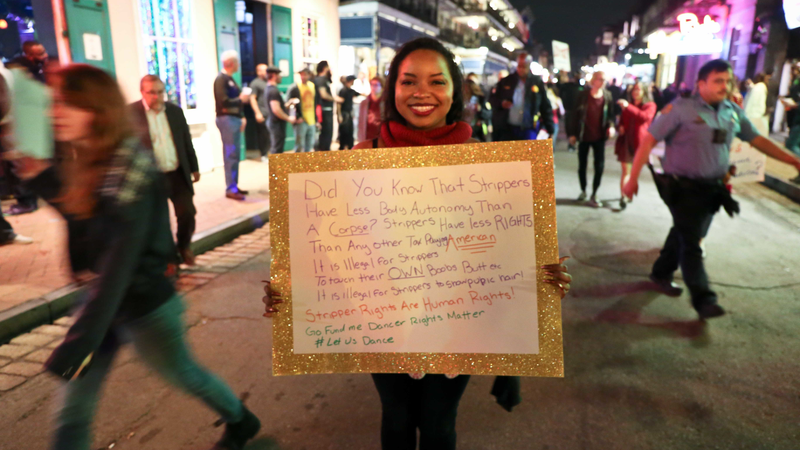 Did You Know That Strippers
Have Less Body Autonomy Than
A Corpse? Strippers Have less RIGHTS
Than Any other Tax Paying American
It is Illegal for Strippers
To touch their OWN Boobs Butt etc
It is illegal for Strippers to show pubic hair!
Stripper Rights Are Human Rights!
Go Fund me Dancer Rights Matter
#Let Us Dance